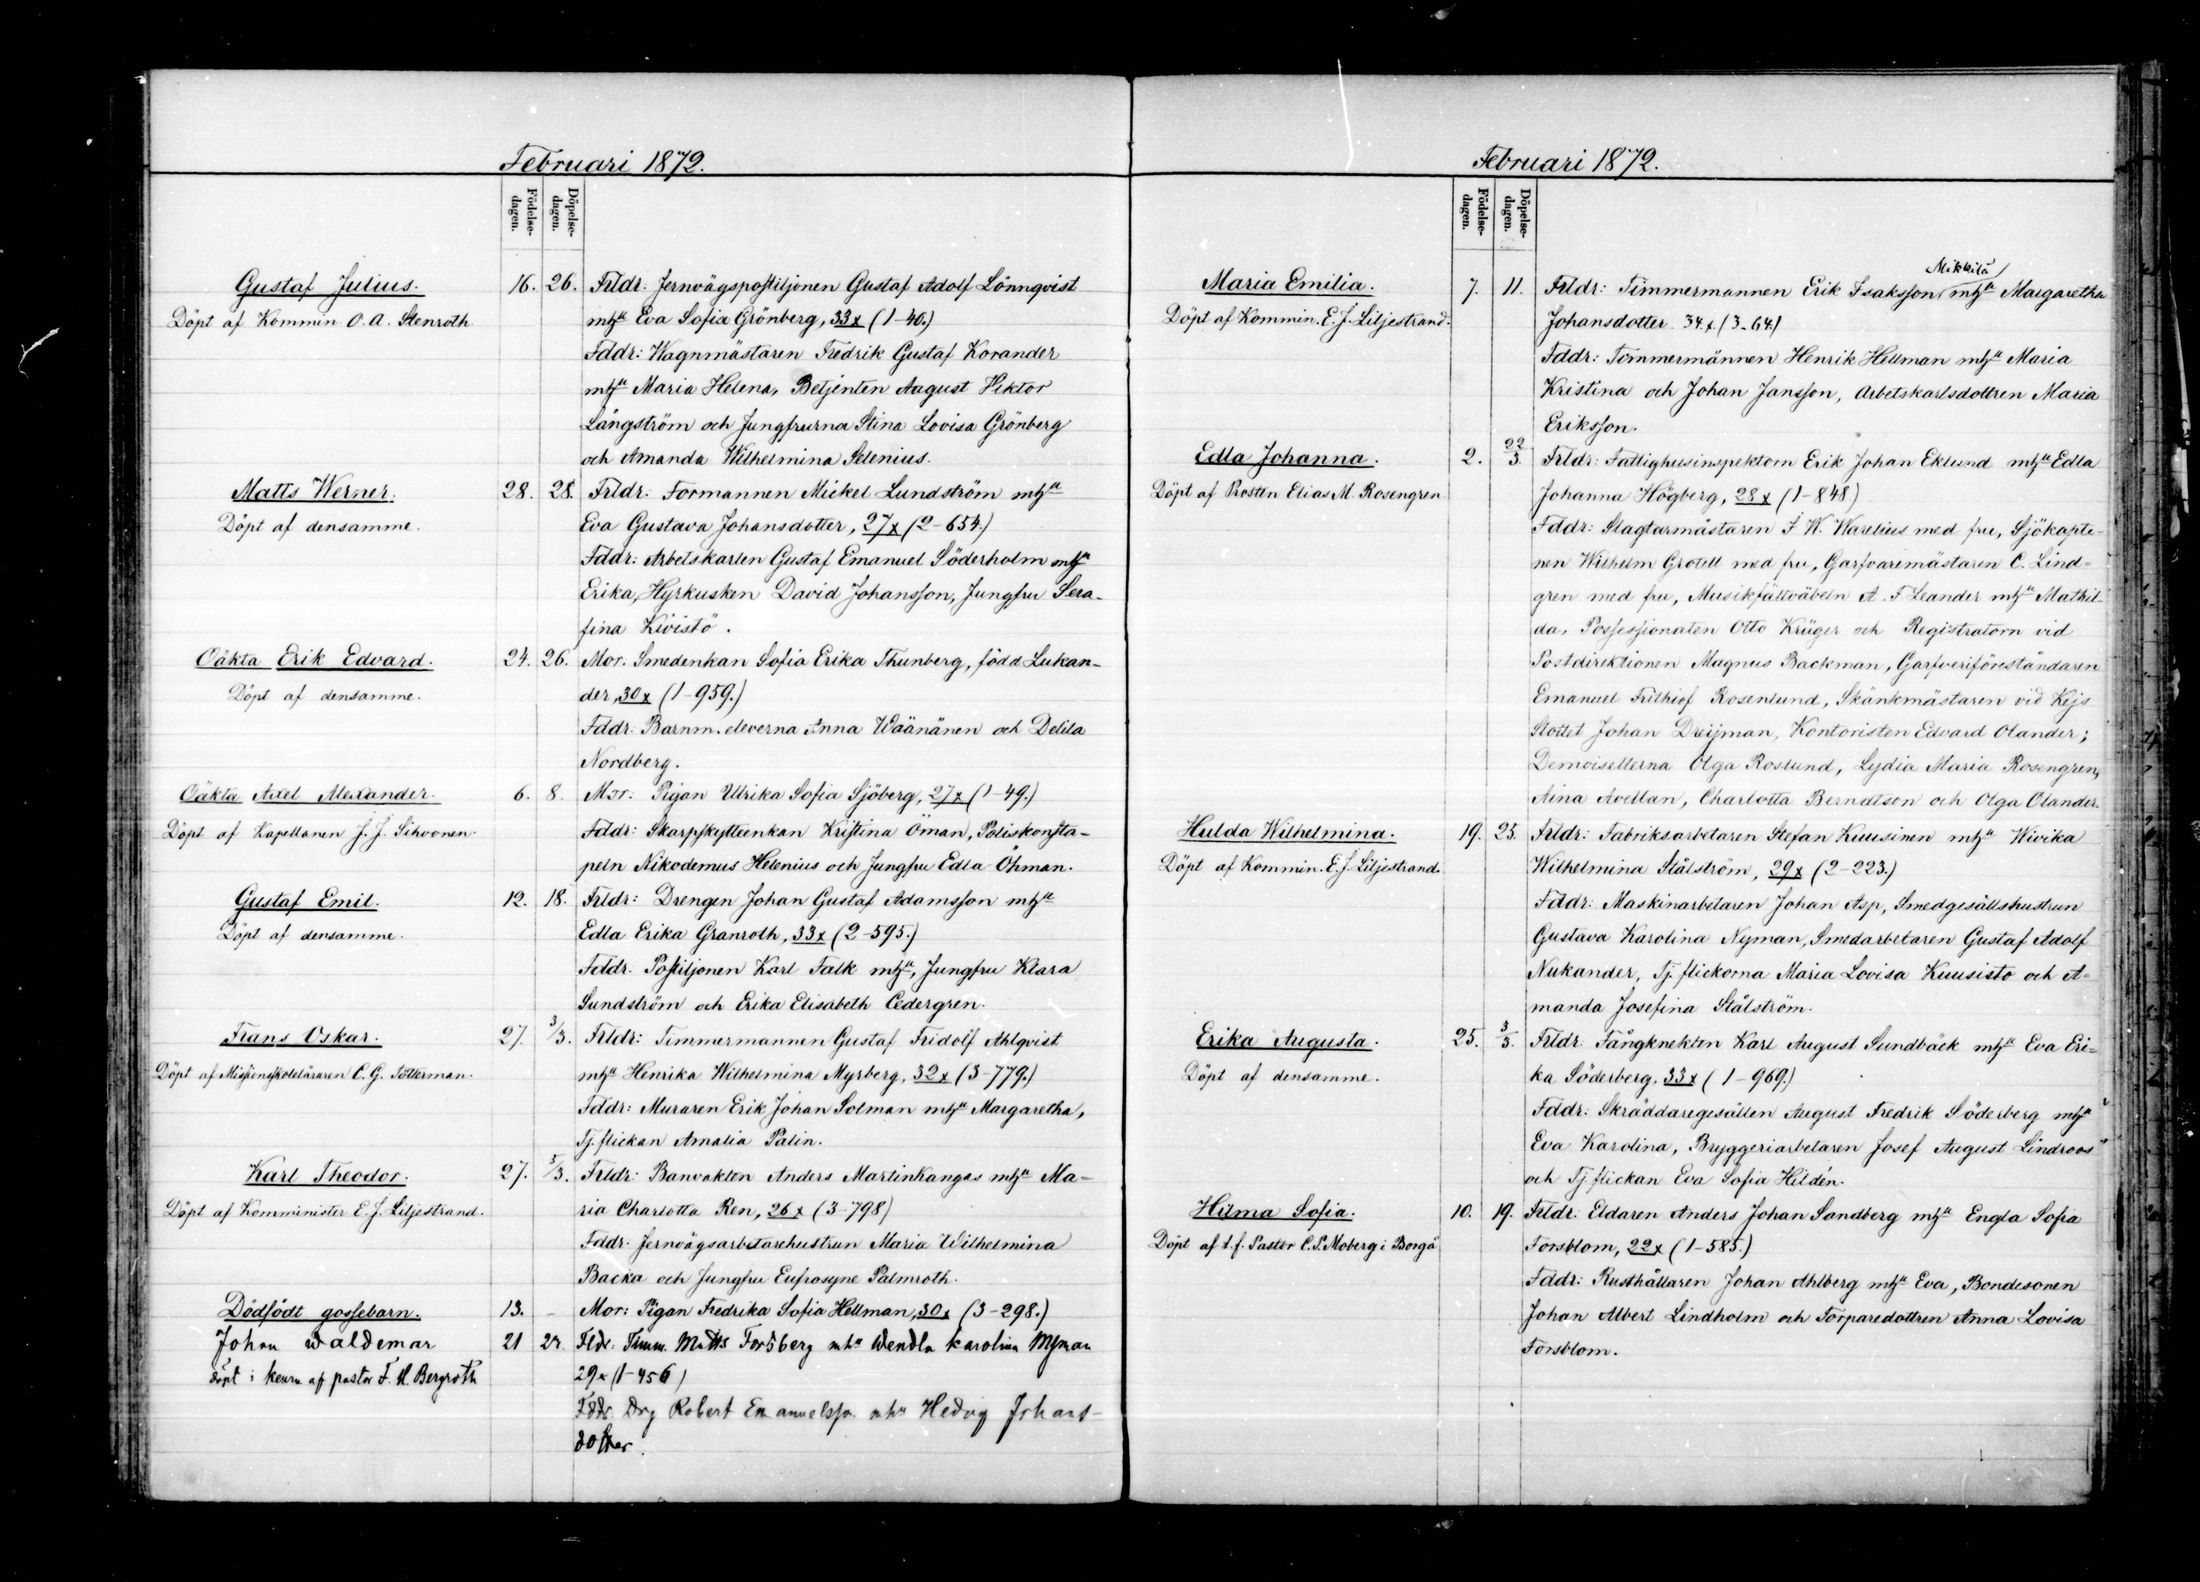 Februari 1872.
Födelse-dagen.
Döpelse-dagen.
Gustaf Julius.
Döpt af Kommin. O. A. Stenroth
16. 26.
Frldr: Jernvägspostiljonen Gustaf Adolf Lönnqvist
mhu Eva Sofia Grönberg, 33x (1-40.)
Fddr: Wagnmästaren Fredrik Gustaf Korander
mhu Maria Helena, Betjenten August Viktor
Långström och Jungfrurna Stina Lovisa Grönberg
och Amanda Wilhelmina Selenius.
Matts Werner.
Döpt af densamme.
28. 28.
Frldr: Formannen Mickel Lundström mhu
Eva Gustava Johansdotter, 27x (2-654.)
Fddr: Arbetskarlen Gustaf Emanuel Söderholm mhu
Erika, Hyrkusken David Johansson, Jungfru Sera-
fina Kivistö.
Oäkta Erik Edvard.
Döpt af densamme.
24. 26.
Mor. Smedenkan Sofia Erika Thunberg, född Lukan-
der, 30x (1-959.)
Fddr: Barnm.eleverna Anna Wäänänen och Delila
Nordberg.
Oäkta Axel Alexander.
Döpt af Kapellanen J. J. Sihvonen.
6. 8.
Mor: Pigan Ulrika Sofia Sjöberg, 27x (1-49.)
Fddr: Skarpskytteenkan Kristina Öman, Poliskonsta-
peln Nikodemus Helenius och Jungfru Edla Öhman.
Gustaf Emil.
Döpt af densamme.
12. 18.
Frldr: Drengen Johan Gustaf Adamsson mhu
Edla Erika Granroth, 33x (2-595.)
Fddr. Postiljonen Karl Falk mhu, Jungfru Klara
Sundström och Erika Elisabeth Cedergren.
Frans Oskar.
Döpt af Missionsskoleläraren C. G. Tötterman.
27. 3/3.
Frldr: Timmermannen Gustaf Fridolf Ahlqvist
mhu Henrika Wilhelmina Myrberg, 32x (3-779.)
Fddr: Muraren Erik Johan Solman mhu Margaretha,
Tj.flickan Amalia Palin.
Karl Theodor.
Döpt af Komminister E. J. Liljestrand.
27. 5/3.
Frldr: Banvakten Anders Martinkangas mhu Ma-
ria Charlotta Ren, 26x (3-798)
Fddr. Jernvägsarbetarehustrun Maria Wilhelmina
Backa och Jungfru Eufrosyne Palmroth.
Dödfödt gossebarn.
13. -
Mor: Pigan Fredrika Sofia Hellman, 30x (3-298.)
Johan Waldemar
döpt i af pastor F. H. Bergroth
21
Fldr: Timm. Matts Forsberg mhu Wendla Karolina Nyman
29x (1-456)
Fddr. Drg Robert Emanuelss. mhu Hedvig Johans-
dotter.
Februari 1872.
Födelse-dagen.
Döpelse-dagen.
Maria Emilia.
Döpt af Kommin. E. J. Liljestrand.
7. 11.
Mikkilä
Frldr: Timmermannen Erik Isaksson mhu Margaretha
Johansdotter 34x (3-64)
Fddr: Timmermännen Henrik Hellman mhu Maria
Kristina och Johan Jansson, Arbetskarlsdottren Maria
Eriksson.
Edla Johanna.
Döpt af Prosten Elias M. Rosengren
2. 22/3.
Frldr: Fattighusinspektorn Erik Johan Eklund mhu Edla
Johanna Högberg, 28x (1-848)
Fddr: Slagtarmästaren F W. Warelius med fru, Sjökapte-
nen Wilhelm Grotell med fru, Garfvaremästaren C. Lind-
gren med fru, Musikfältväbeln A. F Leander mhu Mathil-
da, Possessionaten Otto Krüger och Registratorn vid
Postdirektionen Magnus Backman, Garfveriföreståndaren
Emanuel Frithiof Rosenlund, Skänkmästaren vid Kejs
Slottet Johan Dreijman, Kontoristen Edvard Olander;
Demoisellerna Olga Roslund, Lydia Maria Rosengren,
Aina Avellan, Charlotta Berndtson och Olga Olander.
Hulda Wilhelmina.
Döpt af Kommin. E. J. Liljestrand.
19. 25.
Frldr: Fabriksarbetaren Stefan Kuusinen mhu Wivika
Wilhelmina Stålström, 29x (2-223.)
Fddr: Maskinarbetaren Johan Asp, Smedgesällshustrun
Gustava Karolina Nyman, Smedarbetaren Gustaf Adolf
Nukander, Tj.flickorna Maria Lovisa Kuusisto och A-
manda Josefina Stålström.
Erika Augusta.
Döpt af densamme.
25. 3/3.
Frldr. Fångknekten Karl August Sundbäck mhu Eva Eri-
ka Söderberg, 33x (1-969.)
Fddr: Skräddaregesällen August Fredrik Söderberg mhu
Eva Karolina, Bryggeriarbetaren Josef August Lindroos
och Tj flickan Eva Sofia Hildén.
Hilma Sofia.
Döpt af t.f. Pastor C. P. Moberg i Borgå
10. 19.
Frldr. Eldaren Anders Johan Sandberg mhu Engla Sofia
Forsblom, 22x (1-585.)
Fddr: Rusthållaren Johan Ahlberg mhu Eva, Bondesonen
Johan Albert Lindholm och Torparedottren Anna Lovisa
Forsblom.